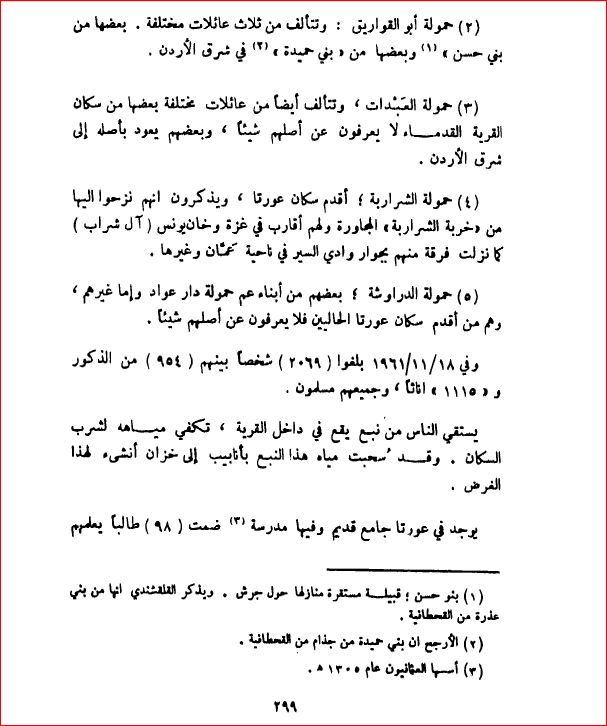 (٢) حمولة أبو القواريق : وتتألف من ثلاث عائلات مختلفة . بعضها من
بني حسن » (١) وبعضها من « بني حميدة » (٢) في شرق الأردن .
(٣) حمولة العبدات ، وتتألف أيضاً من عائلات مختلفة بعضها من سكان
القرية القدمــاء لا يعرفون عن أصلهم شيئاً ، وبعضهم يعود بأصله إلى
شرق الأردن .
(٤) حمولة الشراربة ؛ أقدم سكان عورتا ، ويذكرون انهم نزحوا اليها
من «خربة الشراربة» المجاورة ولهم أقارب في غزة وخان يونس ( آل شراب )
كما نزلت فرقة منهم بجوار وادي السير في ناحية عمّان وغيرها .
(٥) حمولة الدراوشة ؛ بعضهم من أبناء عم حمولة دار عواد وإما غيرهم ،
وهم من أقدم سكان عورتا الحاليين فلا يعرفون عن أصلهم شيئاً .
وفي ١٩٦١/١١/١٨ بلغوا ( ٢٠٦٩ ) شخصاً بينهم ( ٩٥٤ ) من الذكور
و « ١١١٥ » اناثاً ، وجميعهم مسلمون .
يستقي الناس من نبع يقع في داخل القرية ، تكفي ميــاهه لشرب
السكان . وقــد سُحبت مياه هذا النبع بأنابيب إلى خزان أنشىء لهذا
الغرض .
يوجد في عورتا جامع قديم وفيها مدرسة (٣) ضمت ( ٩٨ ) طالباً يعلمهم
(١) بنو حسن ؛ قبيلــة مستقرة منازلها حول جرش . ويذكر القلقشندي انها من بني
عذرة من القحطانية .
(٢) الأرجح ان بني حميدة من جذام من القحطانية .
(٣) أسسها العثمانيون عام ١٣٠٥ ه .
٢٩٩